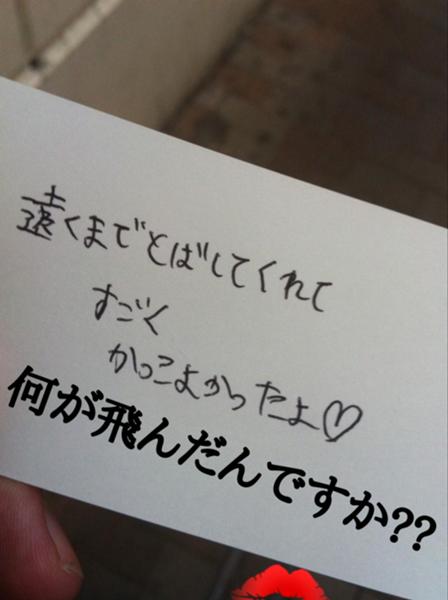 遠くまでとばしてくれて
すごく
かっこよかったよ♡
何が飛んだんですか??